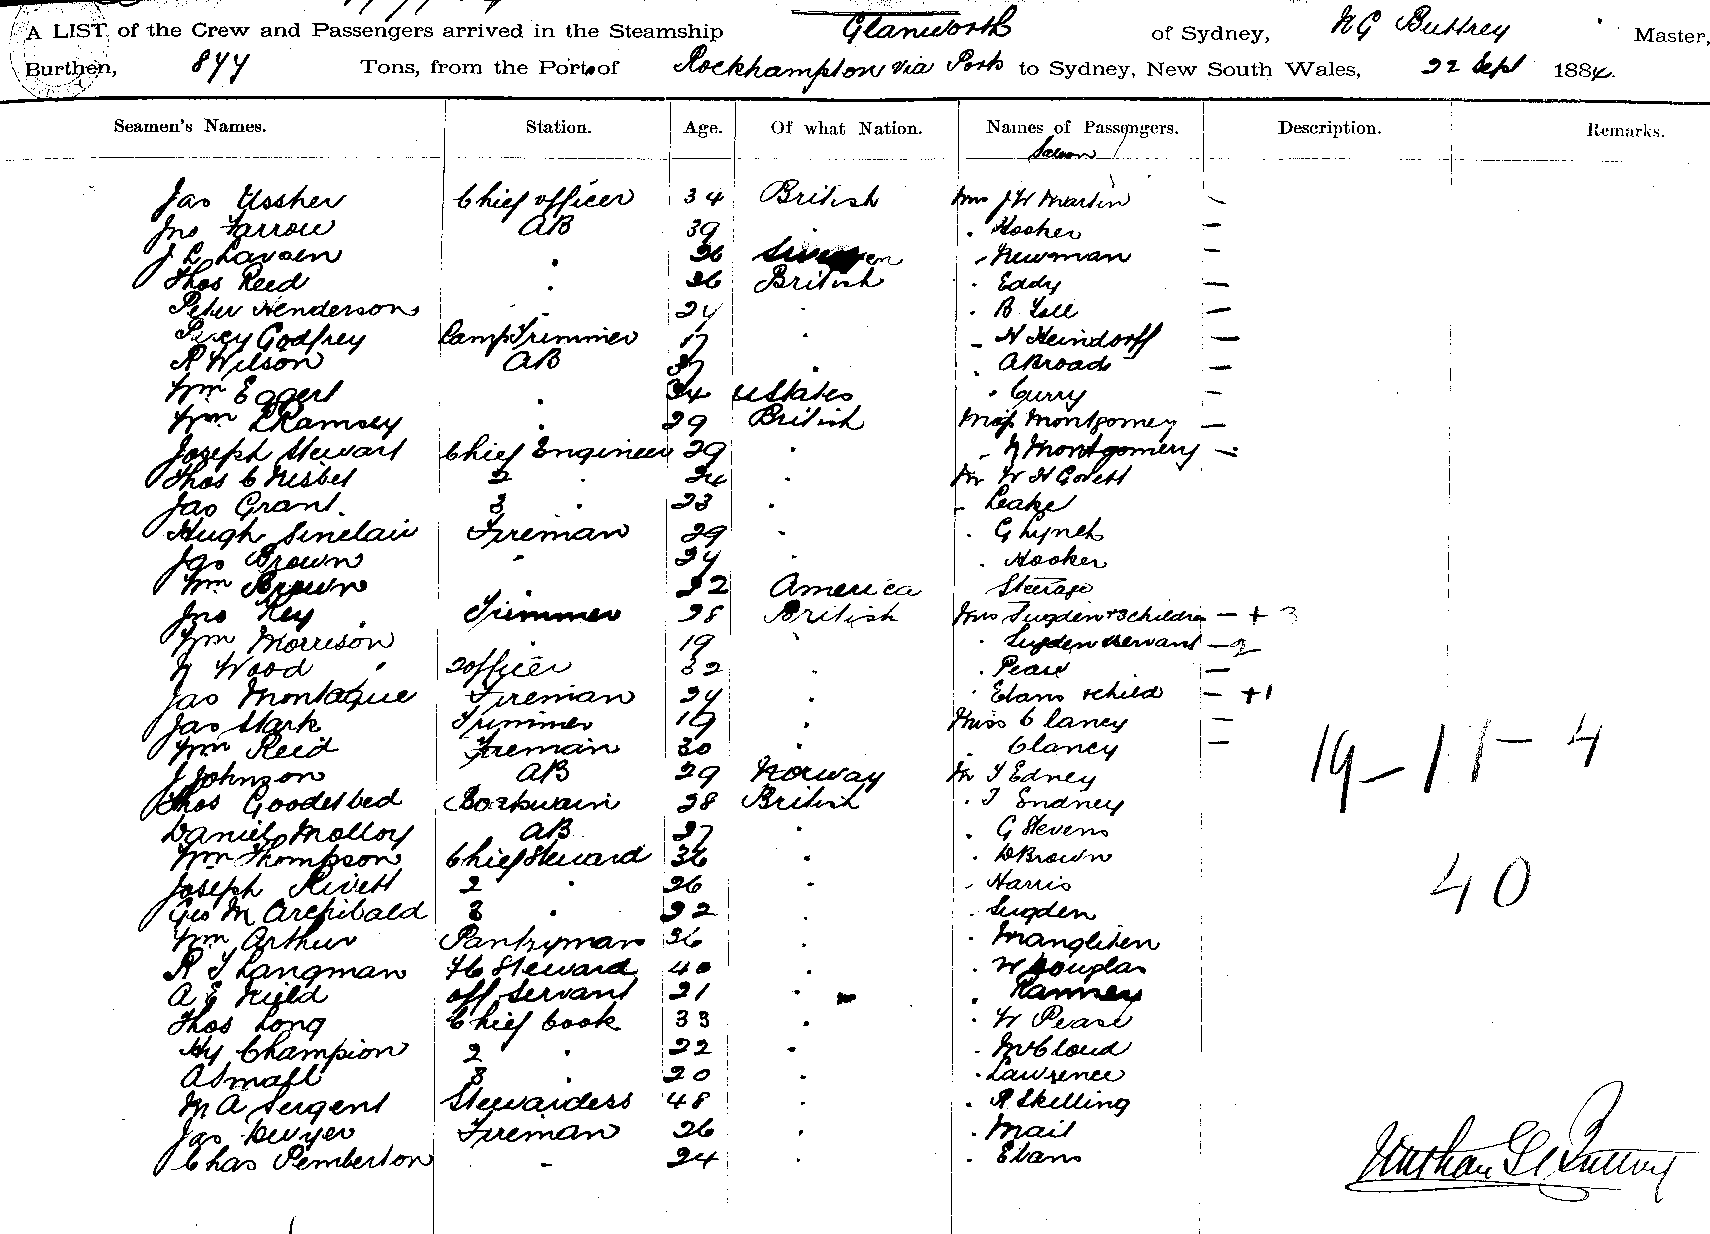 A LIST of the Crew and Passengers arrived in the Steamship Glanworth of Sydney, N G Buttrey Master,
Burthen, 877 Tons, from the Port of Rockhampton via Ports to Sydney, New South Wales, 22 Sept 1884.
Seamen's Names. Station. Age. Of what Nation. Names of Passengers. Description. Remarks.
Saloon
Jas Ussher Chief officer 34 British Mrs J W Martin —
Jno Farrow AB 39 . . Hooker —
J L Larsen . 26 Sweden . Newman —
Thos Reed . 26 British . Eddy —
Peter Henderson . 24 . . B Lell —
Percy Godfrey Lamp Trimmer 17 . . H Heindorff —
R Wilson AB 37 . . A Broad —
Wm Eggert . 34 U States . Curry —
Wm L Ramsey . 29 British Miss Montgomery —
Joseph Stewart Chief Engineer 29 . . N Montgomery —
Thos C Nisbet 2 . 24 . Mr W H Govett
Jas Grant. 3 . 23 . . Leake
Hugh Sinclair Fireman 29 . . G Lynch
Jas Brown . 24 . . Hooker
Wm Brown 32 America Steerage
Jno Key Trimmer 28 British Mrs Sugden & 3 children — + 3
Wm Morrison . 19 . . Sugden & servant — 2
N Wood 2 officer 32 . . Pease —
Jas Montague Fireman 24 . . Evans & child — + 1
Jas Stark Trimmer 19 . Miss Clancy —
Wm Reid Fireman 30 . . Clancy —
J Johnson AB 29 Norway Mr T Edney
19 — 11 — 4
Thos Goodesbed Boatswain 28 British . T Endney
Daniel Molloy AB 27 . . G Stevens
Wm Thompson Chief Steward 36 . . D Brown
Joseph Rivett 2 . 26 . . Harris
40
Geo M Archibald 3 . 22 . . Sugden
Wm Arthur Pantryman 36 .
R T Langman F C Steward 40 . . W Douglas
A E Nield off servant 21 . . Ramsey
Thos Long Chief Cook 33 . . W Pease
Hy Champion 2 . 22 . . McCloud
A Small 3 . 20 . . Lawrence
M A Sergent Stewardess 48 . . R Skelling
Jas Dwyer Fireman 26 . . Mail
Chas Pemberton . 24 . . Evans
Nathan G Buttrey